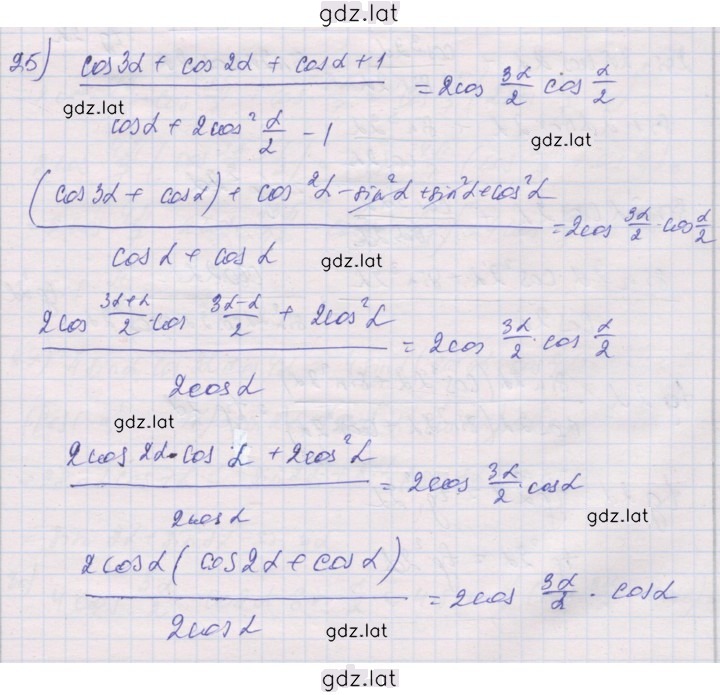 gdz.lat
25) (cos3α + cos2α + cosα + 1) / (cosα + 2cos² α/2 - 1) = 2cos 3α/2 cos α/2
gdz.lat gdz.lat
((cos3α + cosα) + cos²α - sin²α + sin²α + cos²α) / (cosα + cosα) = 2cos 3α/2 · cos α/2
gdz.lat
(2cos (3α+α)/2 · cos (3α-α)/2 + 2cos²α) / (2cosα) = 2cos 3α/2 · cos α/2
gdz.lat
(2cos2α · cosα + 2cos²α) / (2cosα) = 2cos 3α/2 · cosα
gdz.lat
(2cosα(cos2α + cosα)) / (2cosα) = 2cos 3α/2 · cosα
gdz.lat
gdz.lat